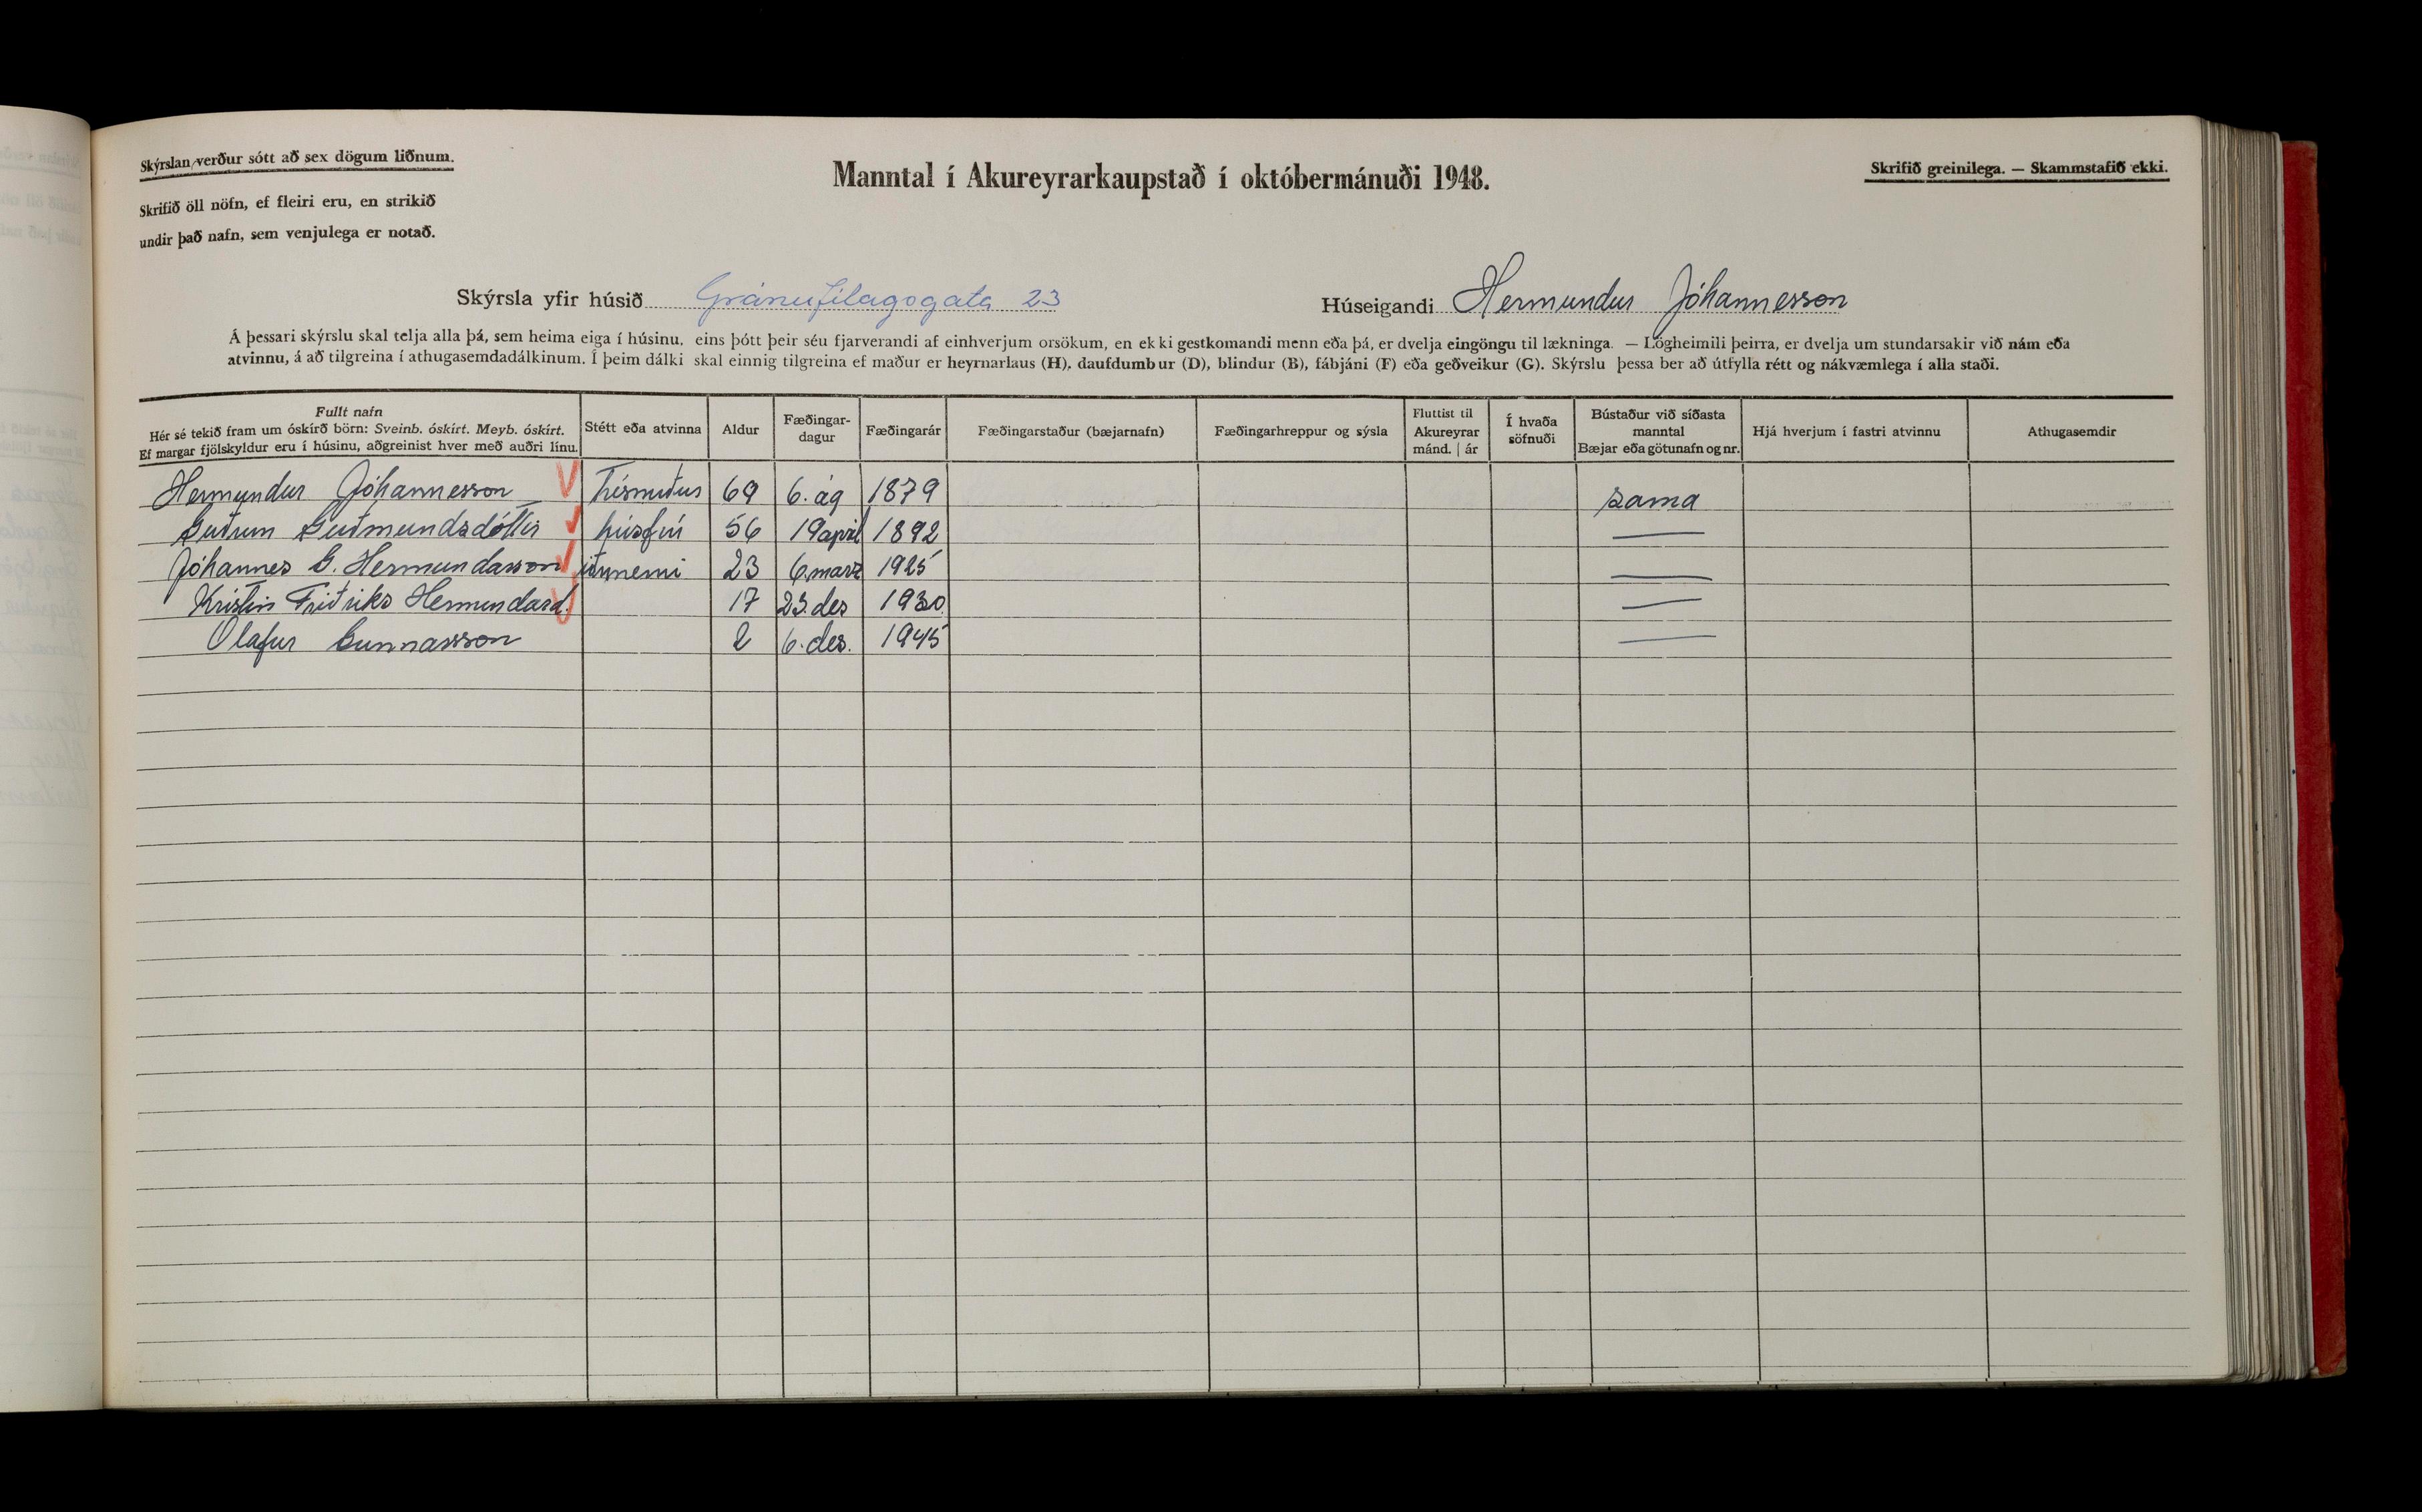 Skýrslan verður sótt að sex dögum liðnum.
Skrifið öll nöfn, ef fleiri eru, en strikið
undir það nafn, sem venjulega er notað.
Manntal í Akureyrarkaupstað í októbermánuði 1948.
Skrifið greinilega. — Skammstafið ekki.
Skýrsla yfir húsið Gránufélagsgata 23
Húseigandi Hermundur Jóhannesson
Á þessari skýrslu skal telja alla þá, sem heima eiga í húsinu, eins þótt þeir séu fjarverandi af einhverjum orsökum, en ekki gestkomandi menn eða þá, er dvelja eingöngu til lækninga. — Lögheimili þeirra, er dvelja um stundarsakir við nám eða
atvinnu, á að tilgreina í athugasemdadálkinum. Í þeim dálki skal einnig tilgreina ef maður er heyrnarlaus (H), daufdumbur (D), blindur (B), fábjáni (F) eða geðveikur (G). Skýrslu þessa ber að útfylla rétt og nákvæmlega í alla staði.
Fullt nafn
Hér sé tekið fram um óskírð börn: Sveinb. óskírt. Meyb. óskírt.
Ef margar fjölskyldur eru í húsinu, aðgreinist hver með auðri línu.
Stétt eða atvinna
Aldur
Fæðingar-
dagur
Fæðingarár
Fæðingarstaður (bæjarnafn)
Fæðingarhreppur og sýsla
Fluttist til
Akureyrar
mánd. | ár
Í hvaða
söfnuði
Bústaður við síðasta
manntal
Bæjar eða götunafn og nr.
Hjá hverjum í fastri atvinnu
Athugasemdir
Hermundur Jóhannesson V trésmiður 69 6. ág 1879 sama
Guðrun Guðmundsdóttir húsfrú 56 19 april 1892 —
Jóhannes G. Hermundarson iðnnemi 23 6 marz 1925 —
Kristin Friðriks Hermundard. 17 23 des 1930 —
Olafur Gunnarsson 2 6. des. 1945 —